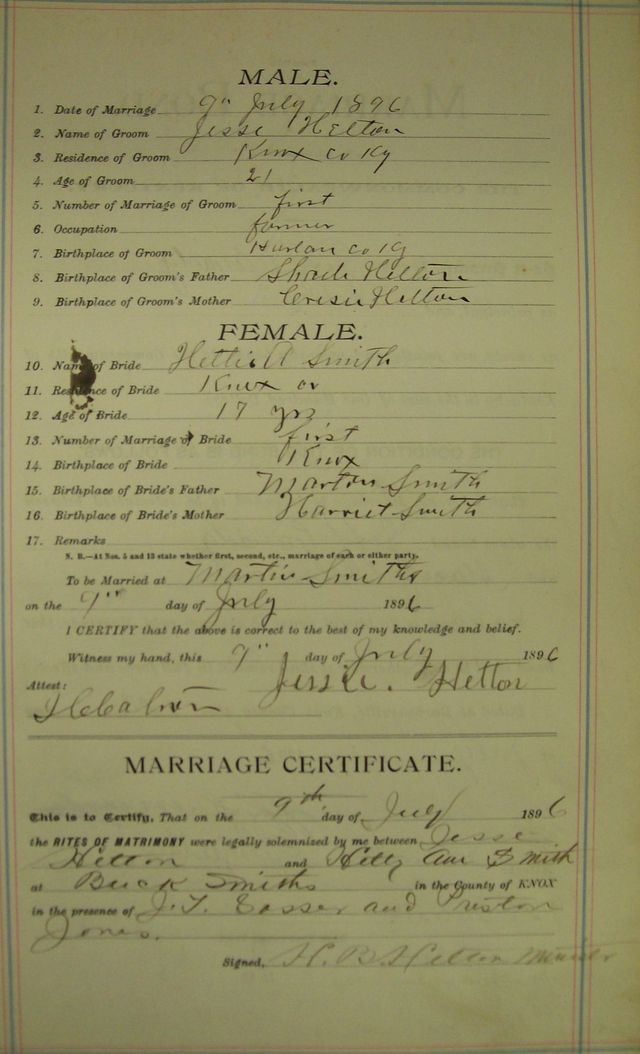 MALE.
1. Date of Marriage 9" July 1896
2. Name of Groom Jesse Helton
3. Residence of Groom Knox co Ky
4. Age of Groom 21
5. Number of Marriage of Groom first
6. Occupation farmer
7. Birthplace of Groom Harlan co Ky
8. Birthplace of Groom's Father Shade Helton
9. Birthplace of Groom's Mother Helton
FEMALE.
10. Name of Bride Hettie A Smith
11. Residence of Bride Knox co
12. Age of Bride 17 yrs
13. Number of Marriage of Bride first
14. Birthplace of Bride Knox
15. Birthplace of Bride's Father Marton Smith
16. Birthplace of Bride's Mother Harriet Smith
17. Remarks
N. B.—At Nos. 5 and 13 state whether first, second, etc., marriage of each or either party.
To be Married at Martin Smiths
on the 9" day of July 1896
I CERTIFY that the above is correct to the best of my knowledge and belief.
Witness my hand, this 9" day of July 1896
Attest: Jessie. Helton
MARRIAGE CERTIFICATE.
This is to Certify, That on the 9th day of July 1896
the RITES OF MATRIMONY were legally solemnized by me between Jesse
Helton and Ann Smith
at Buck Smiths in the County of KNOX
in the presence of J. T. and Preston
Jones.
Signed, H. B. Helton Minister